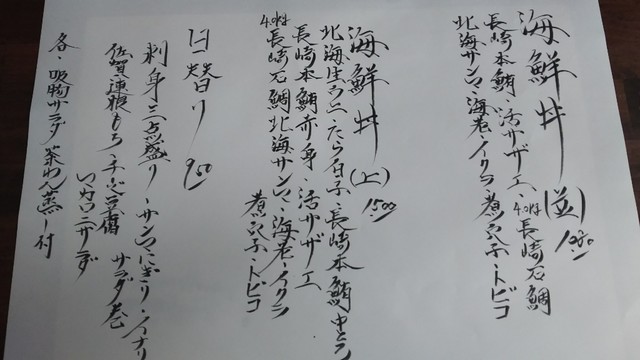 海鮮丼(並)1000
長崎本鮪・活サザエ・4.0kg長崎石鯛
北海サンマ・海老・イクラ・煮穴子・トビコ
海鮮丼(上)1500
北海生うに・たら白子・長崎本鮪中とろ
長崎本鮪赤身・活サザエ
4.0kg長崎石鯛北海サンマ・海老・イクラ
煮穴子・トビコ
日替り 950
刺身三点盛り・サンマにぎり・イナリ
佐賀蓮根もち・手造豆富 サラダ巻
いかカニサラダ
各・吸物サラダ茶わん蒸し付